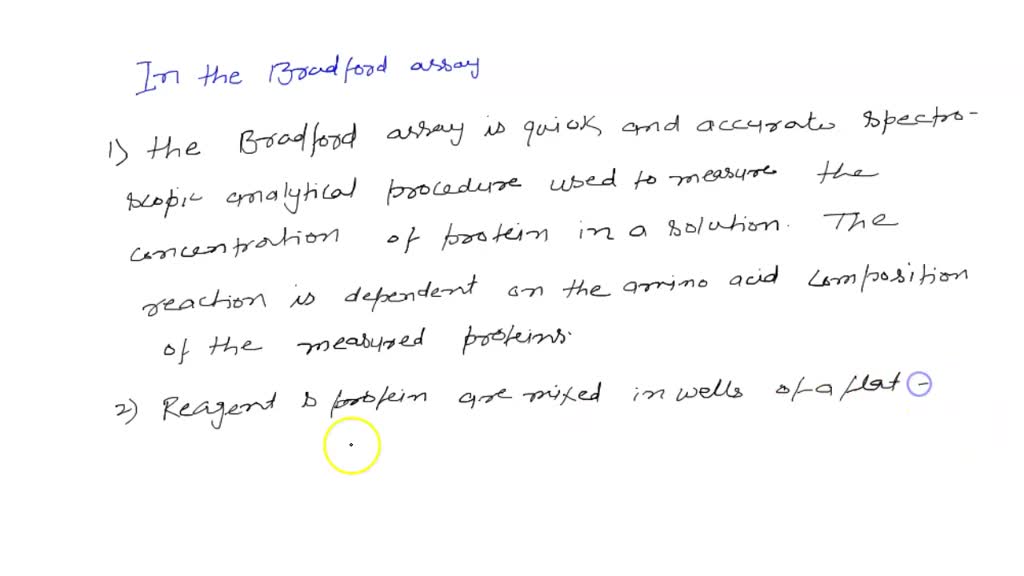 In the Bradford assay
1) the Bradford assay is quick and accurate spectro-
scopic analytical procedure used to measure the
concentration of protein in a solution. The
reaction is dependent on the amino acid composition
of the measured proteins.
2) Reagent & protein are mixed in wells of a flat -